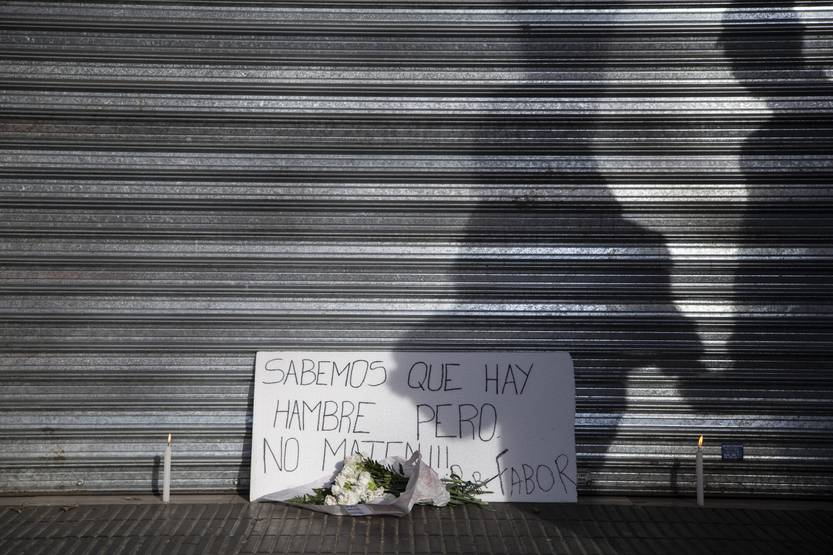 SABEMOS QUE HAY
HAMBRE PERO.
NO MATEN!!!
POR FABOR